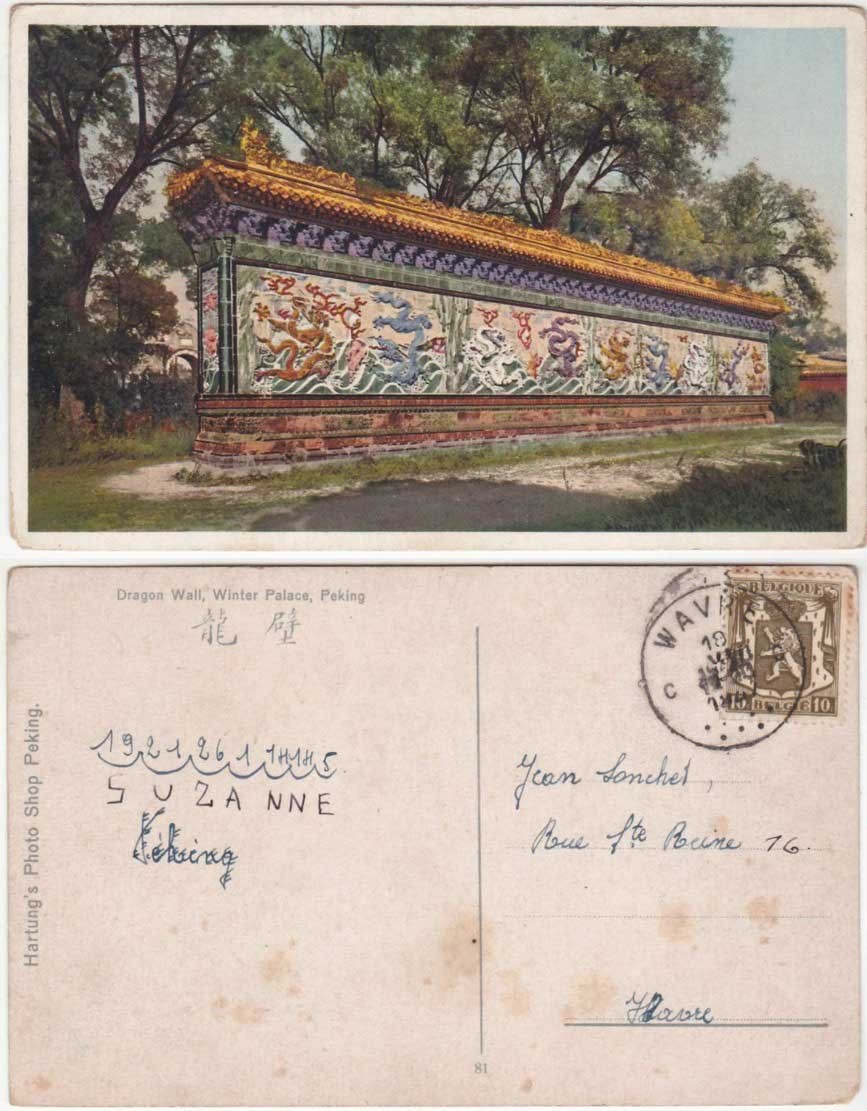 Dragon Wall, Winter Palace, Peking
龍 壁
Hartung's Photo Shop Peking.
19 21 26 1 14 14 5
SUZANNE
Peking
WAVRE
18
C
BELGIQUE
BELGIE
10 10
Jean Sanchet,
Rue Ste Reine 16.
Wavre
81